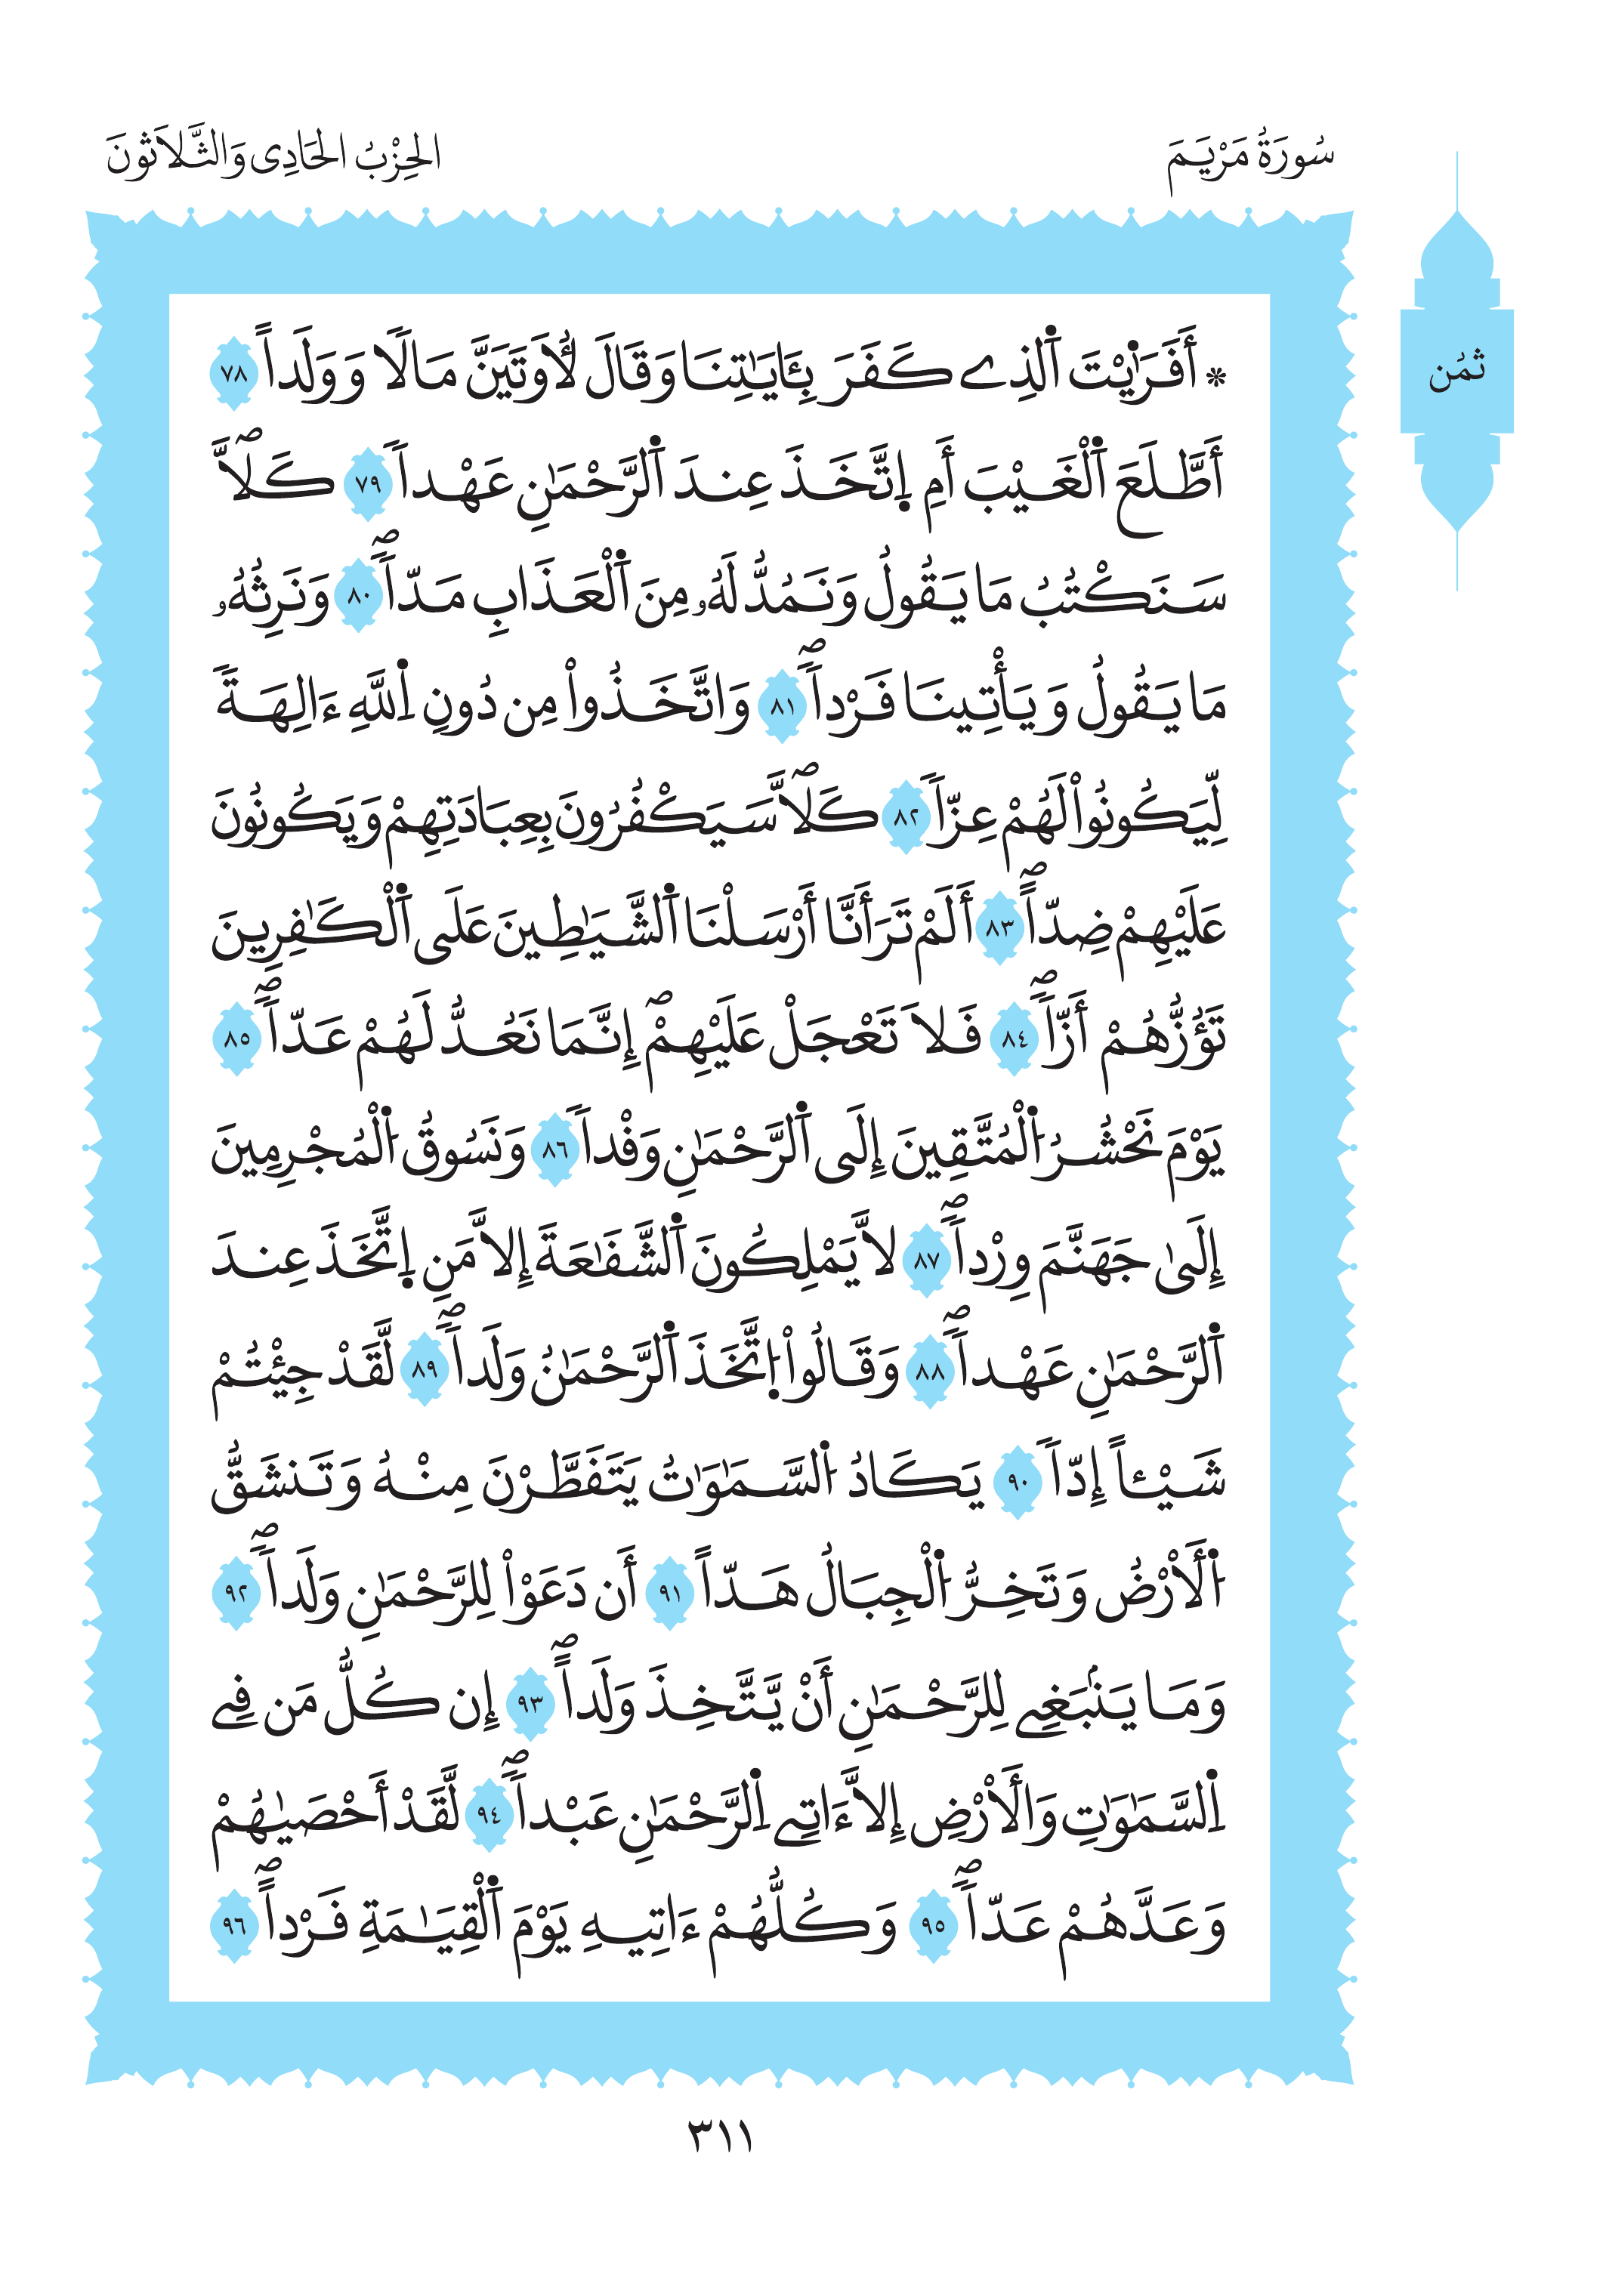 سُورَةُ مَرْيَمَ
الحِزْبُ الحَادِى وَالثَّلَاثُونَ
ثُمُن
* أَفَرَٰيْتَ اَ۬لذِے كَفَرَ بِـَٔايَٰتِنَا وَقَالَ لَأُوتَيَنَّ مَالاٗ وَوَلَداًۖ ٧٨
أَطَّلَعَ اَ۬لْغَيْبَ أَمِ اِ۪تَّخَذَ عِندَ اَ۬لرَّحْمَٰنِ عَهْداٗ ٧٩ كَلَّاۖ
سَنَكْتُبُ مَا يَقُولُ وَنَمُدُّ لَهُۥ مِنَ اَ۬لْعَذَابِ مَدّاٗۖ ٨٠ وَنَرِثُهُۥ
مَا يَقُولُ وَيَأْتِينَا فَرْداٗۖ ٨١ وَاتَّخَذُواْ مِن دُونِ اِ۬للَّهِ ءَالِهَةٗ
لِّيَكُونُواْ لَهُمْ عِزّاٗ ٨٢ كَلَّاۖ سَيَكْفُرُونَ بِعِبَادَتِهِمْ وَيَكُونُونَ
عَلَيْهِمْ ضِدّاًۖ ٨٣ أَلَمْ تَرَ أَنَّا أَرْسَلْنَا اَ۬لشَّيَٰطِينَ عَلَى اَ۬لْكَٰفِرِينَ
تَؤُزُّهُمْ أَزّاٗۖ ٨٤ فَلَا تَعْجَلْ عَلَيْهِمْۖ إِنَّمَا نَعُدُّ لَهُمْ عَدّاٗۖ ٨٥
يَوْمَ نَحْشُرُ اُ۬لْمُتَّقِينَ إِلَى اَ۬لرَّحْمَٰنِ وَفْداٗ ٨٦ وَنَسُوقُ اُ۬لْمُجْرِمِينَ
إِلَىٰ جَهَنَّمَ وِرْداٗۖ ٨٧ لَّا يَمْلِكُونَ اَ۬لشَّفَٰعَةَ إِلَّا مَنِ اِ۪تَّخَذَ عِندَ
اَ۬لرَّحْمَٰنِ عَهْداٗۖ ٨٨ وَقَالُواْ اُ۪تَّخَذَ اَ۬لرَّحْمَٰنُ وَلَداٗۖ ٨٩ لَّقَدْ جِئْتُمْ
شَيْـٔاً إِدّاٗ ٩٠ يَكَادُ اُ۬لسَّمَٰوَٰتُ يَتَفَطَّرْنَ مِنْهُ وَتَنشَقُّ
اُ۬لْأَرْضُ وَتَخِرُّ اُ۬لْجِبَالُ هَدّاً ٩١ أَن دَعَوْاْ لِلرَّحْمَٰنِ وَلَداٗۖ ٩٢
وَمَا يَنۢبَغِے لِلرَّحْمَٰنِ أَنْ يَّتَّخِذَ وَلَداًۖ ٩٣ إِن كُلُّ مَن فِے
اِ۬لسَّمَٰوَٰتِ وَالْأَرْضِ إِلَّا ءَاتِے اِ۬لرَّحْمَٰنِ عَبْداٗۖ ٩٤ لَّقَدْ أَحْصَيٰهُمْ
وَعَدَّهُمْ عَدّاٗۖ ٩٥ وَكُلُّهُمْ ءَاتِيهِ يَوْمَ اَ۬لْقِيَٰمَةِ فَرْداًۖ ٩٦
٣١١